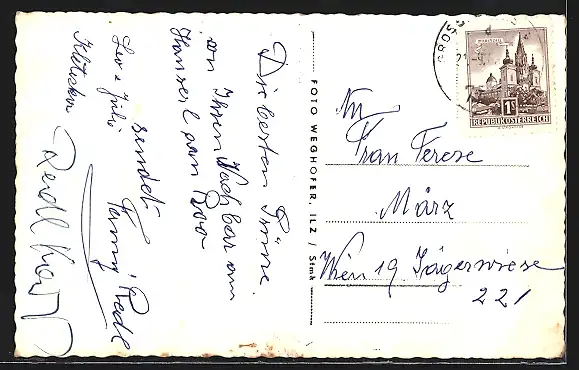 Die besten Grüsse
von Ihren Nachbar am
Hanserl am Boo
sendet Fanny Redl
Leo & Juli
Redl Karl
FOTO WEGHOFER, ILZ / Stmk
GROSS
1S
REPUBLIK ÖSTERREICH
An
Frau Terese
März
Wien 19 Jägerwiese
221